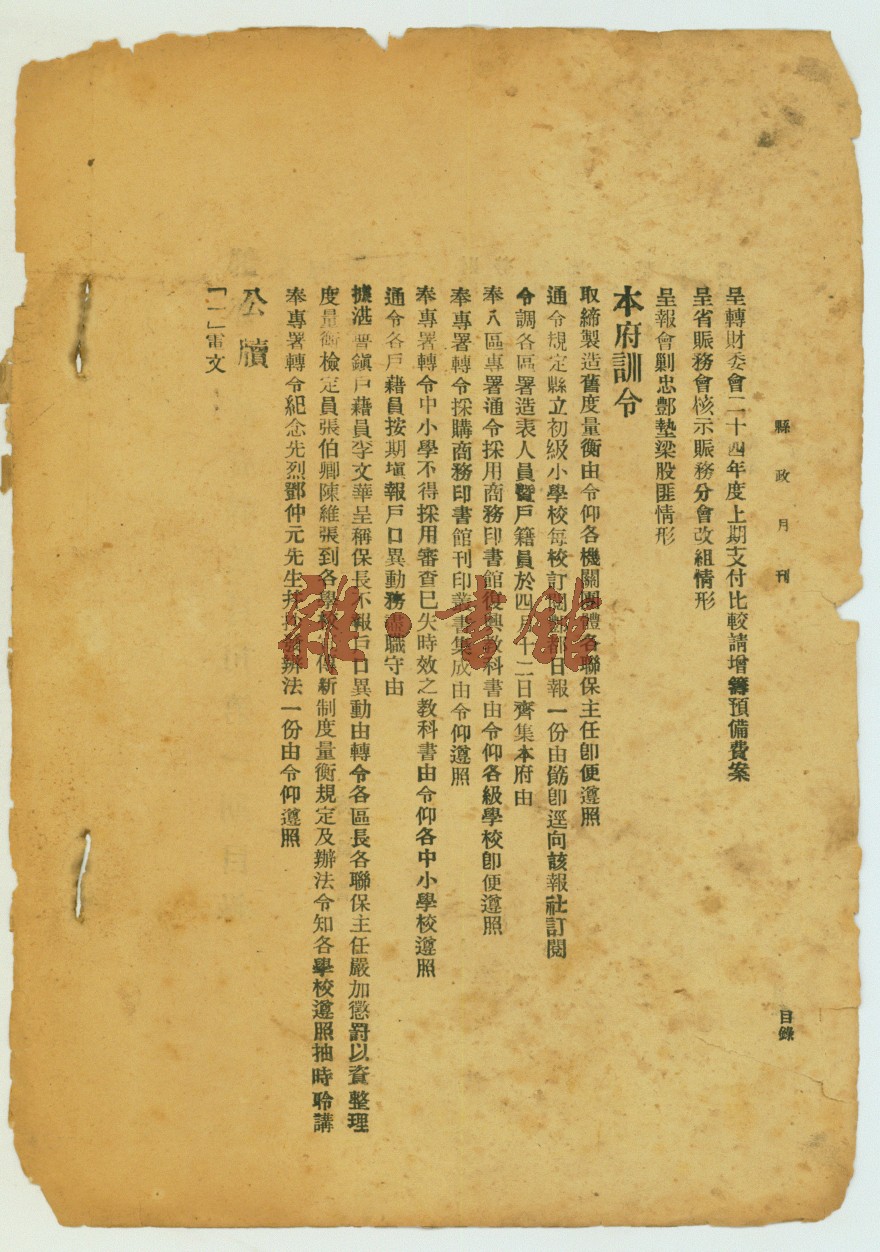 縣政月刊
目錄
呈轉財委會二十四年度上期支付比較請增籌預備費案
呈省賑務會核示賑務分會改組情形
呈報會剿忠酆墊梁股匪情形
本府訓令
取締製造舊度量衡由令仰各機關團體各聯保主任卽便遵照
通令規定縣立初級小學校每校訂閱都日報一份由飭卽逕向該報社訂閱
令調各區署造表人員暨戶籍員於四月十二日齊集本府由
奉八區專署通令採用商務印書館復興教科書由令仰各級學校卽便遵照
奉專署轉令採購商務印書館刊印叢書集成由令仰遵照
奉專署轉令中小學不得採用審查已失時效之教科書由令仰各中小學校遵照
通令各戶藉員按期塡報戶口異動務盡職守由
據湛普鎭戶藉員李文華呈稱保長不報戶口異動由轉令各區長各聯保主任嚴加懲罸以資整理
度量衡檢定員張伯卿陳維張到各學校傳新制度量衡規定及辦法令知各學校遵照抽時聆講
奉專署轉令紀念先烈鄧仲元先生辦法一份由令仰遵照
公牘
「一」電文
雜·書館